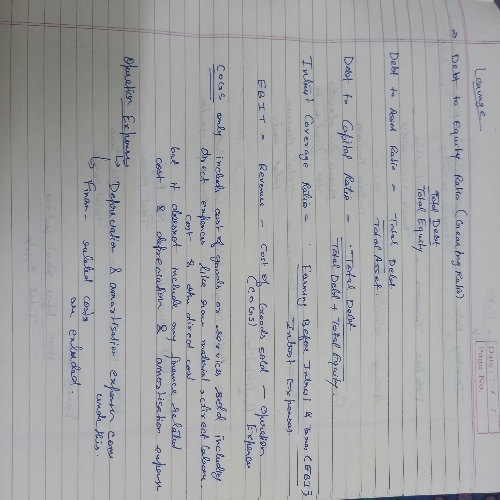 Leverage
⇒ Debt to Equity Ratio (Gearing Ratio)
Total Debt
Total Equity
Debt to Asset Ratio = Total Debt
Total Asset.
Debt to Capital Ratio = Total Debt
Total Debt + Total Equity.
Interest Coverage Ratio = Earning Before Interest & Taxes (EBIT)
Interest Expenses
EBIT = Revenue - Cost of Goods sold - Operation
(COGS) Expenses
COGS only include cost of goods or services sold including
direct expenses like raw material & direct labour
cost & other direct cost
but it doesnot include any finance related
cost & depreciation & amortisation expense
Operation Expenses
↳ Depreciation & amortisation expenses come
under this.
↳ Finan- related costs
are excluded.
Date: / /
Page No.